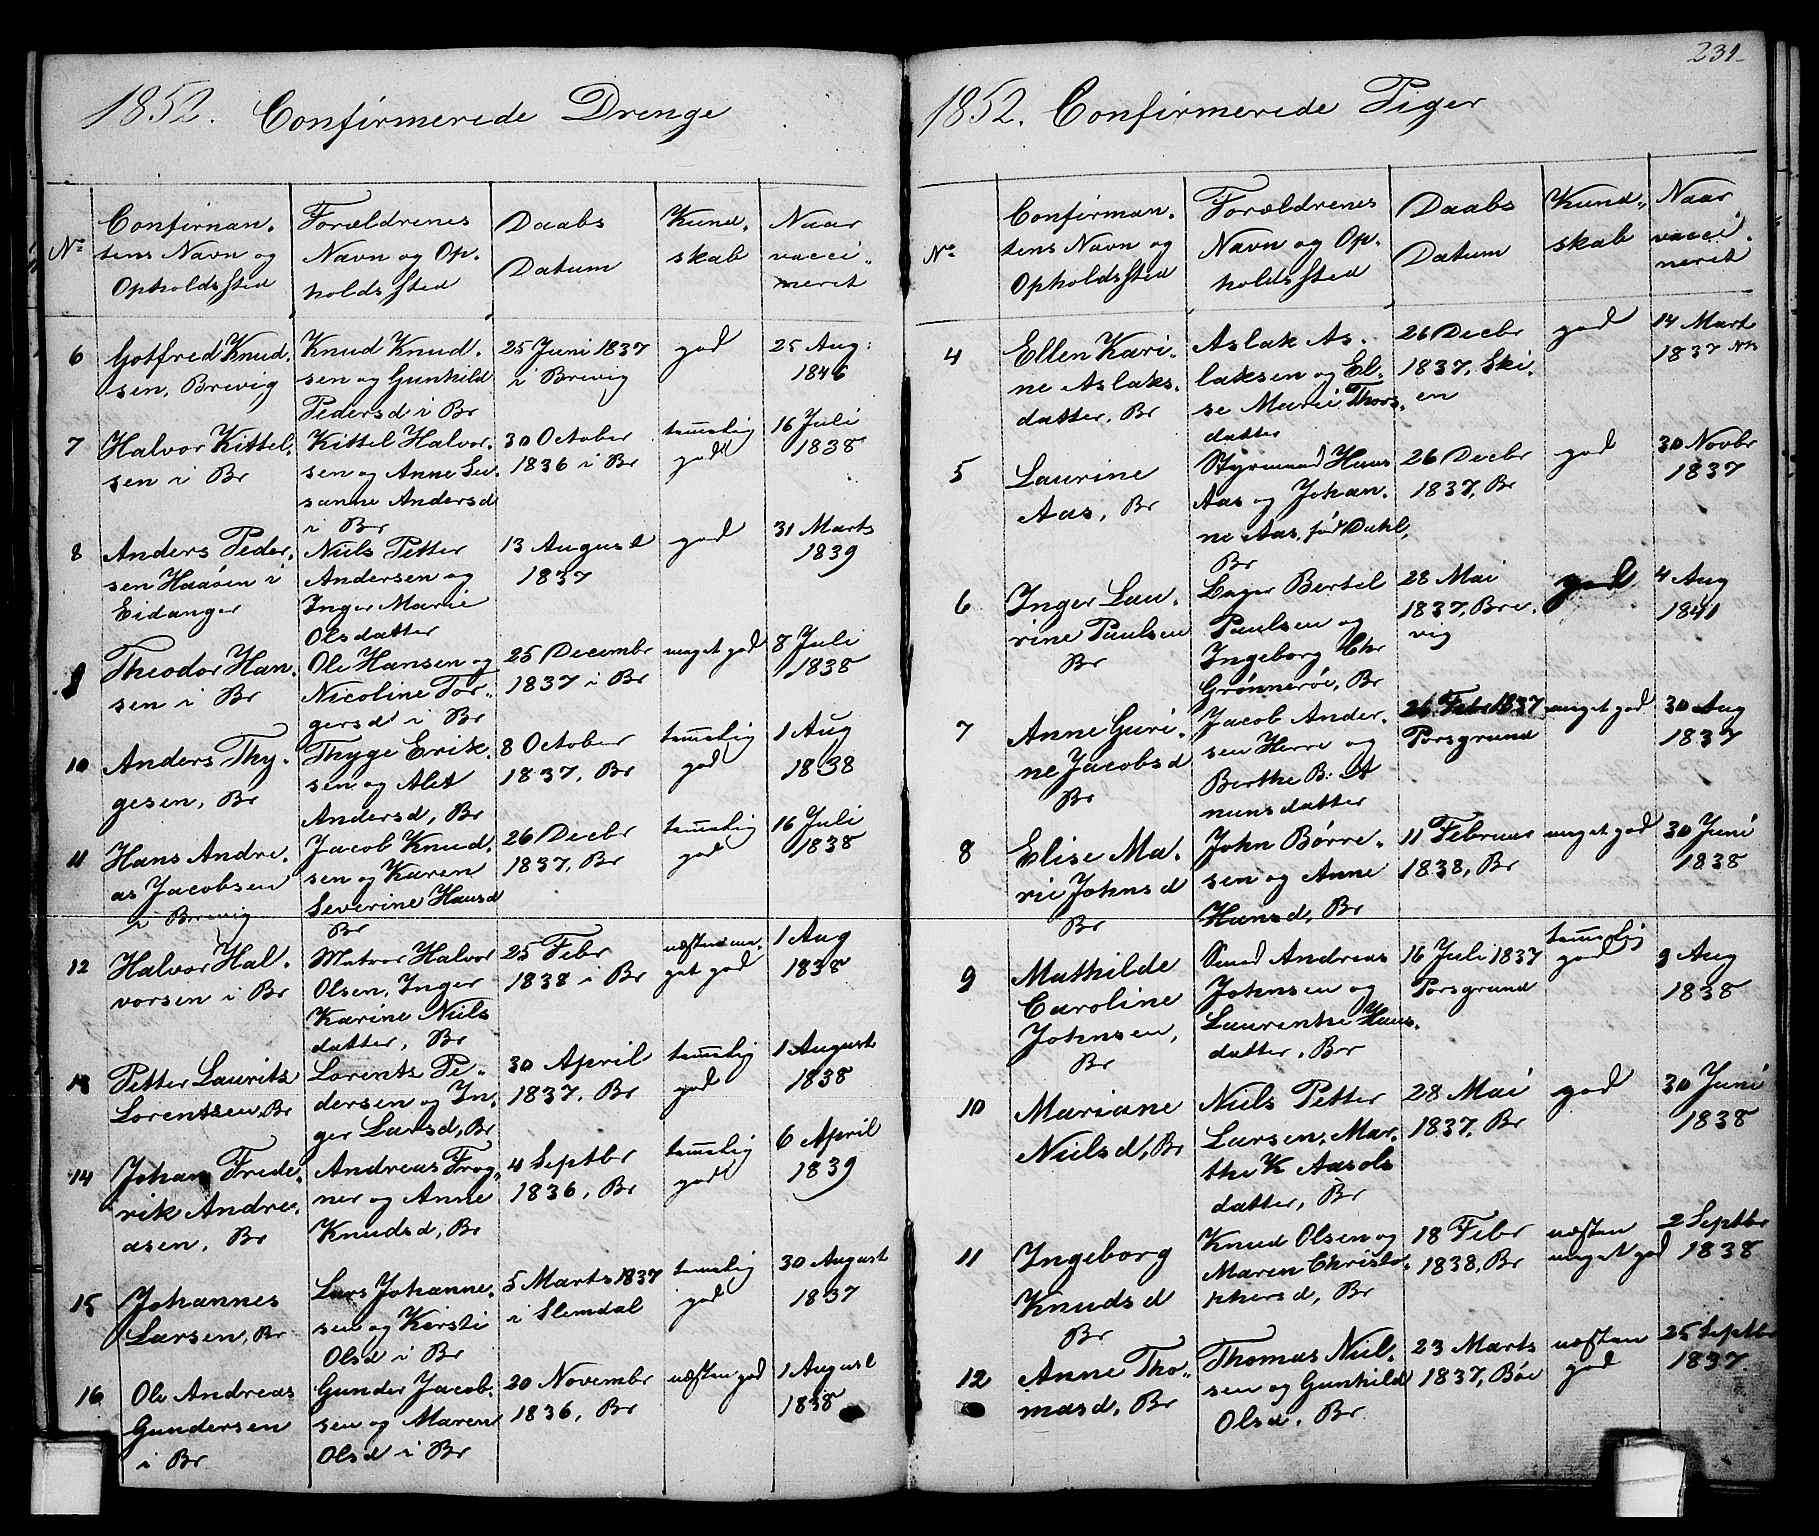 1852. Confirmerede Drenge
No
Confirman-
tens Navn og
Opholdssted
Forældrenes
Navn og Op-
holdssted
Daabs
Datum
Kund-
skab
Naar
vacci-
neret
6
Gotfred Knud-
sen, Brevig
Knud Knud-
sen og Gunhild
Pedersd i Br
25 Juni 1837
i Brevig
god
25 Aug:
1846
7
Halvor Kittel-
sen i Br
Kittel Halvor-
sen og Anne Su-
sanne Andersd
i Br
30 October
1836 i Br
temelig
god
16 Juli
1838
8
Anders Peder-
sen Haaøen i
Eidanger
Niels Petter
Andersen og
Inger Marie
Olsdatter
13 August
1837
god
31 Marts
1839
9
Theodor Han-
sen i Br
Ole Hansen og
Nicoline Tor-
gersd i Br
25 Decembr
1837 i Br
meget god
8 Juli
1838
10
Anders Thy-
gesen, Br
Thyge Erik-
sen og Alet
Andersd, Br
8 October
1837, Br
temelig
god
1 Aug
1838
11
Hans Andre-
as Jacobsen
i Brevig
Jacob Knud-
sen og Karen
Severine Hansd
Br
26 Decbr
1837, Br
temelig
god
16 Juli
1838
12
Halvor Hal-
vorsen i Br
Matros Halvor
Olsen, Inger
Karine Niels
datter, Br
25 Febr
1838 i Br
næsten me-
get god
1 Aug
1838
13
Petter Laurits
Lorentsen, Br
Lorents Pe-
dersen og In-
ger Larsd, Br
30 April
1837, Br
temelig
god
1 August
1838
14
Johan Frede-
rik Andre-
asen, Br
Andreas Frog-
ner og Anne
Knudsd, Br
4 Septbr
1836, Br
temelig
god
6 April
1839
15
Johannes
Larsen, Br
Lars Johanne-
sen og Kirsti
Olsd i Br
5 Marts 1837
i Slemdal
temelig
god
30 August
1837
16
Ole Andreas
Gundersen
i Br
Gunder Jacob-
sen og Maren
Olsd i Br
20 Novembr
1836, Br
næsten god
1 August
1838
231
1852. Confirmerede Piger
No
Confirman-
tens Navn og
Opholdssted
Forældrenes
Navn og Op-
holdssted
Daabs
Datum
Kund-
skab
Naar
vacci-
neret
4
Ellen Kari-
ne Aslaks-
datter, Br
Aslak As-
laksen og El-
se Marie Thors-
datter
26 Decbr
1837, Ski-
en
god
14 Mart
1837
5
Laurine
Aas, Br
Styrmand Hans
Aas og Johan-
ne Aas, fød Dahl,
Br
26 Decbr
1837, Br
god
30 Novbr
1837
6
Inger Lau-
rine Paulsen
Br
Bertel
Paulsen og
Ingeborg Chr
Grønnerøe, Br
28 Mai
1837, Bre-
vig
god
4 Aug
1841
7
Anne Guri-
ne Jacobsd
Br
Jacob Ander-
sen Herre og
Berthe B: A
munsdatter
26 Febr 1837
Porsgrund
meget god
30 Aug
1837
8
Elise Ma-
rie Johnsd
Br
John Børre-
sen og Anne
Hansd, Br
11 Februar
1838, Br
meget god
30 Juni
1838
9
Mathilde
Caroline
Johnsen,
Br
Smed Andreas
Johnsen og
Laurenthe Hans-
datter, Br
16 Juli 1837
Porsgrund
temelig
god
9 Aug
1838
10
Mariane
Nielsd, Br
Niels Petter
Larsen, Mar-
the K Aasols
datter, Br
28 Mai
1837, Br
god
30 Juni
1838
11
Ingeborg
Knudsd
Br
Knud Olsen og
Maren Christo-
phersd, Br
18 Febr
1838, Br
næsten
meget god
2 Septbr
1838
12
Anne Tho-
masd, Br
Thomas Niel-
sen og Gunhild
Olsd, Br
23 Marts
1837, Böe
næsten
god
25 Septbr
1837